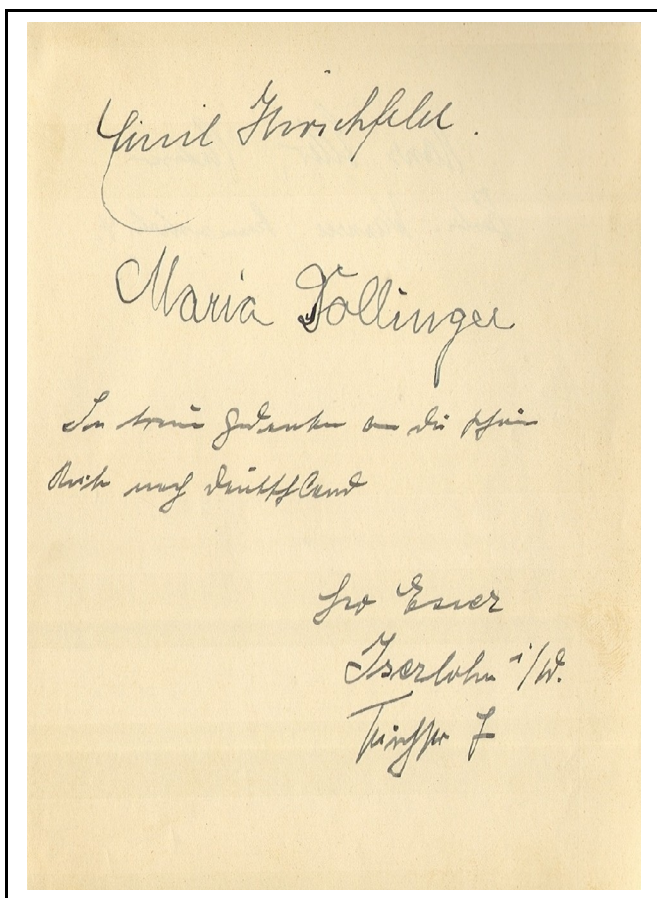 Emil Hirschfeld.
Maria Dollinger
In treuen Gedenken an die schöne
Reise nach Deutschland
Esser
Iserlohn i/W.
7